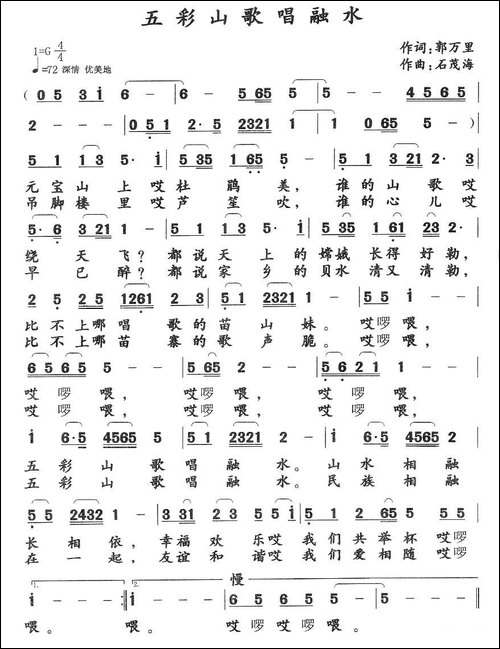 五彩山歌唱融水
1=G 4/4
作词:郭万里
♩=72 深情 优美地
作曲:石茂海
( 0 5 3 i 6 - | 6 - 5 65 5 | 5 - - 4 5 6 5 |
2 - - - | 0 5 1 2·5 2321 | 1 - 1 0 | 0 0 5 - )
5 1 1 3 5· i | 5 35 1 65 5 - | 5 1 3 21 2· 3 |
元宝山上哎杜鹃美,谁的山歌哎
吊脚楼里哎芦笙吹,谁的心儿哎
5·6 3 21 1 -
绕天飞?都说天上的嫦娥长得好勒,
早已醉?都说家乡的贝水清又清勒,
2 5 2 5 1261 2 3 | 5 1 2321 1 - | i 5 5 i -
比不上哪唱歌的苗山妹。哎啰喂,
比不上哪苗寨的歌声脆。哎啰喂,
6 5 65 5 - | 5 65 2 - | 5 6 2 1 1 -
哎啰喂,哎啰喂,哎啰喂,
哎啰喂,哎啰喂,哎啰喂,
i 6·5 4565 5 | 5 1 2321 1 - | i 6·5 4565 2
五彩山歌唱融水。山水相融
五彩山歌唱融水。民族相融
5 5 2432 1 - | 3 31 2 3 5 5 i | 5 1 2 65 5 5
长相依,幸福欢乐哎我们共举杯哎啰
在一起,友谊和谐哎我们爱相随哎啰
1. 2. 慢
i - - - :| i - - - | 6 5 6 5 5 - | 5 - - - ‖
喂。喂。哎啰哎啰喂。